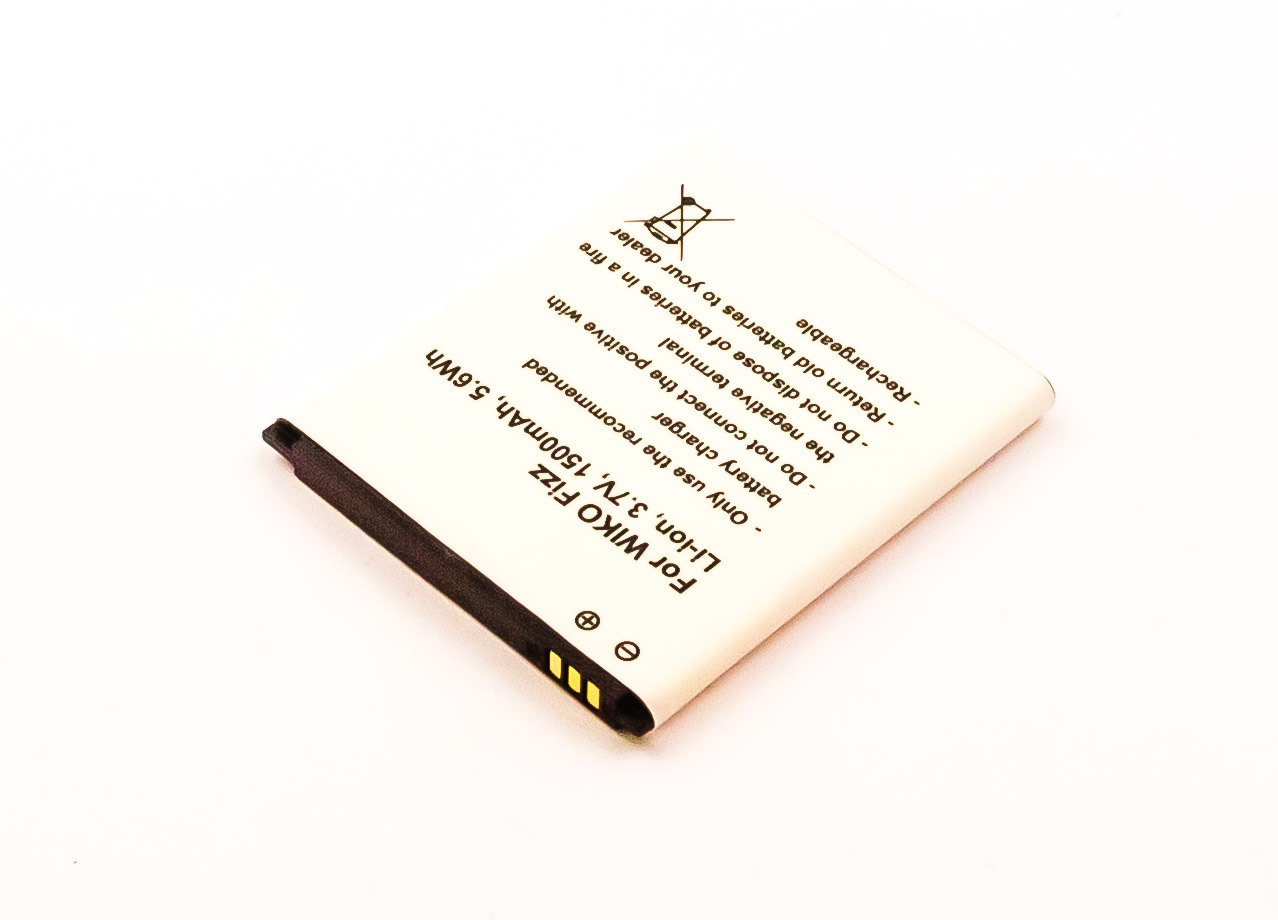 For WIKO Fizz
Li-Ion, 3.7V, 1500mAh, 5.6Wh
- Only use the recommended
battery charger
- Do not connect the positive with
the negative terminal
- Do not dispose of batteries in a fire
- Return old batteries to your dealer
- Rechargeable